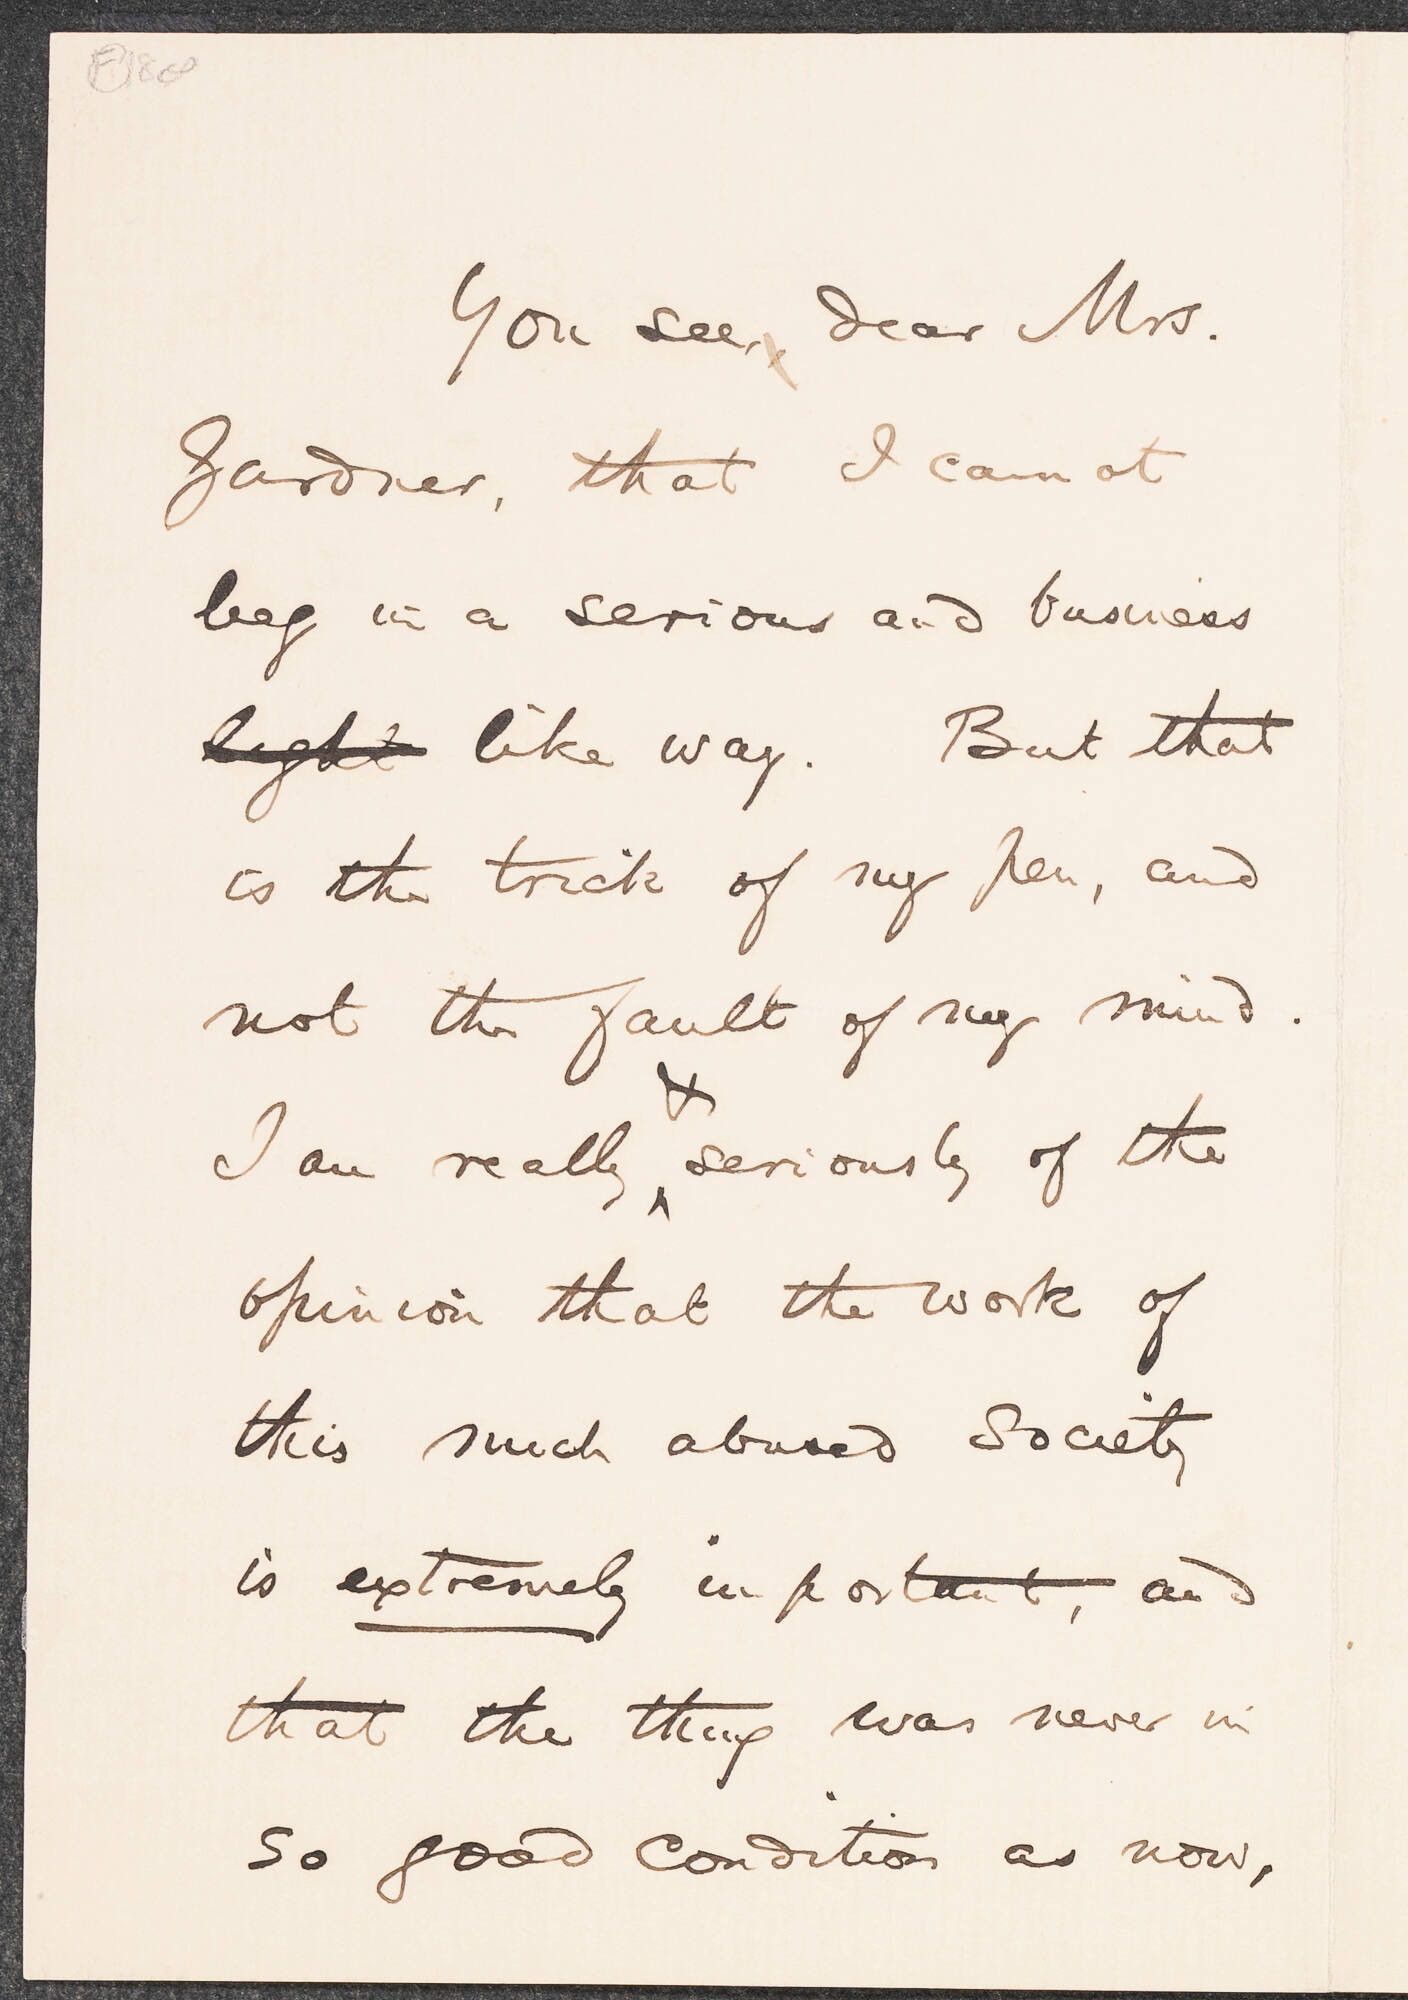 You see, dear Mrs.
Gardner, that I cannot
beg in a serious and business
light like way. But that
is the trick of my pen, and
not the fault of my mind.
&
I am really seriously of the
opinion that the work of
this much abused Society
is extremely important, and
that the thing was never in
so good condition as now,